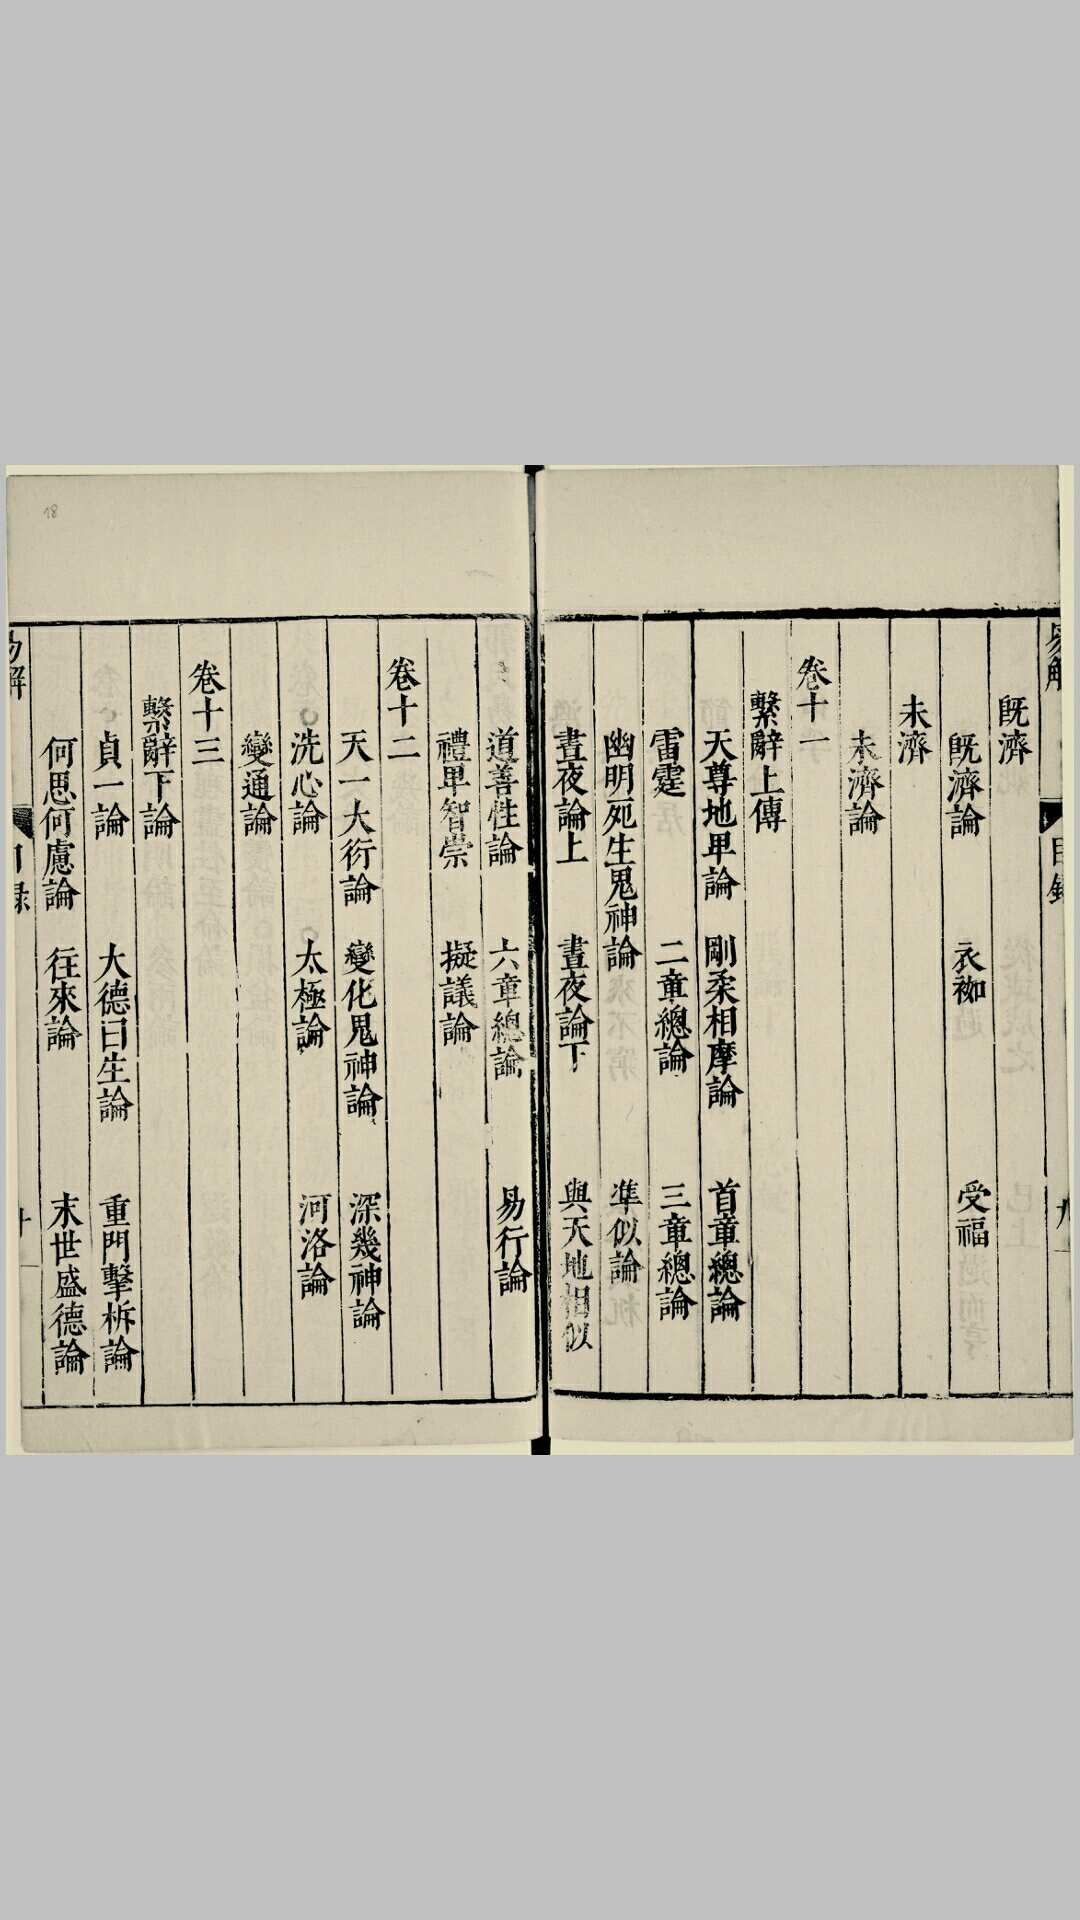 易解 目錄 九
既濟
既濟論 衣袽 受福
未濟
未濟論
卷十一
繫辭上傳
天尊地卑論 剛柔相摩論 首章總論
雷霆 二章總論 三章總論
幽明死生鬼神論 準似論
晝夜論上 晝夜論下 與天地相似
道善性論 六章總論 易行論
禮卑智崇 擬議論
卷十二
天一大衍論 變化鬼神論 深幾神論
洗心論 太極論 河洛論
變通論
卷十三
繫辭下論
貞一論 大德曰生論 重門擊柝論
何思何慮論 往來論 末世盛德論
易解 目錄 十
18